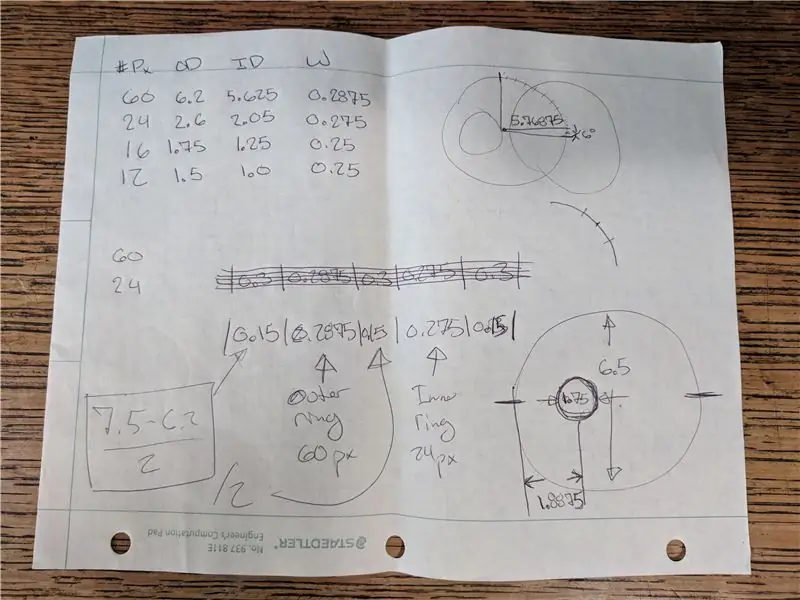 #Px OD ID W
60 6.2 5.625 0.2875
24 2.6 2.05 0.275
16 1.75 1.25 0.25
12 1.5 1.0 0.25
5.76875
6°
60
24
0.3 0.2875 0.3 0.275 0.3
|0.15|0.2875|0.15|0.275|0.15|
7.5-6.2
2
/2
Outer
ring
60px
Inner
ring
24px
6.5
1.75
1.8875
STAEDTLER®
No. 937 811E
Engineer's Computation Pad